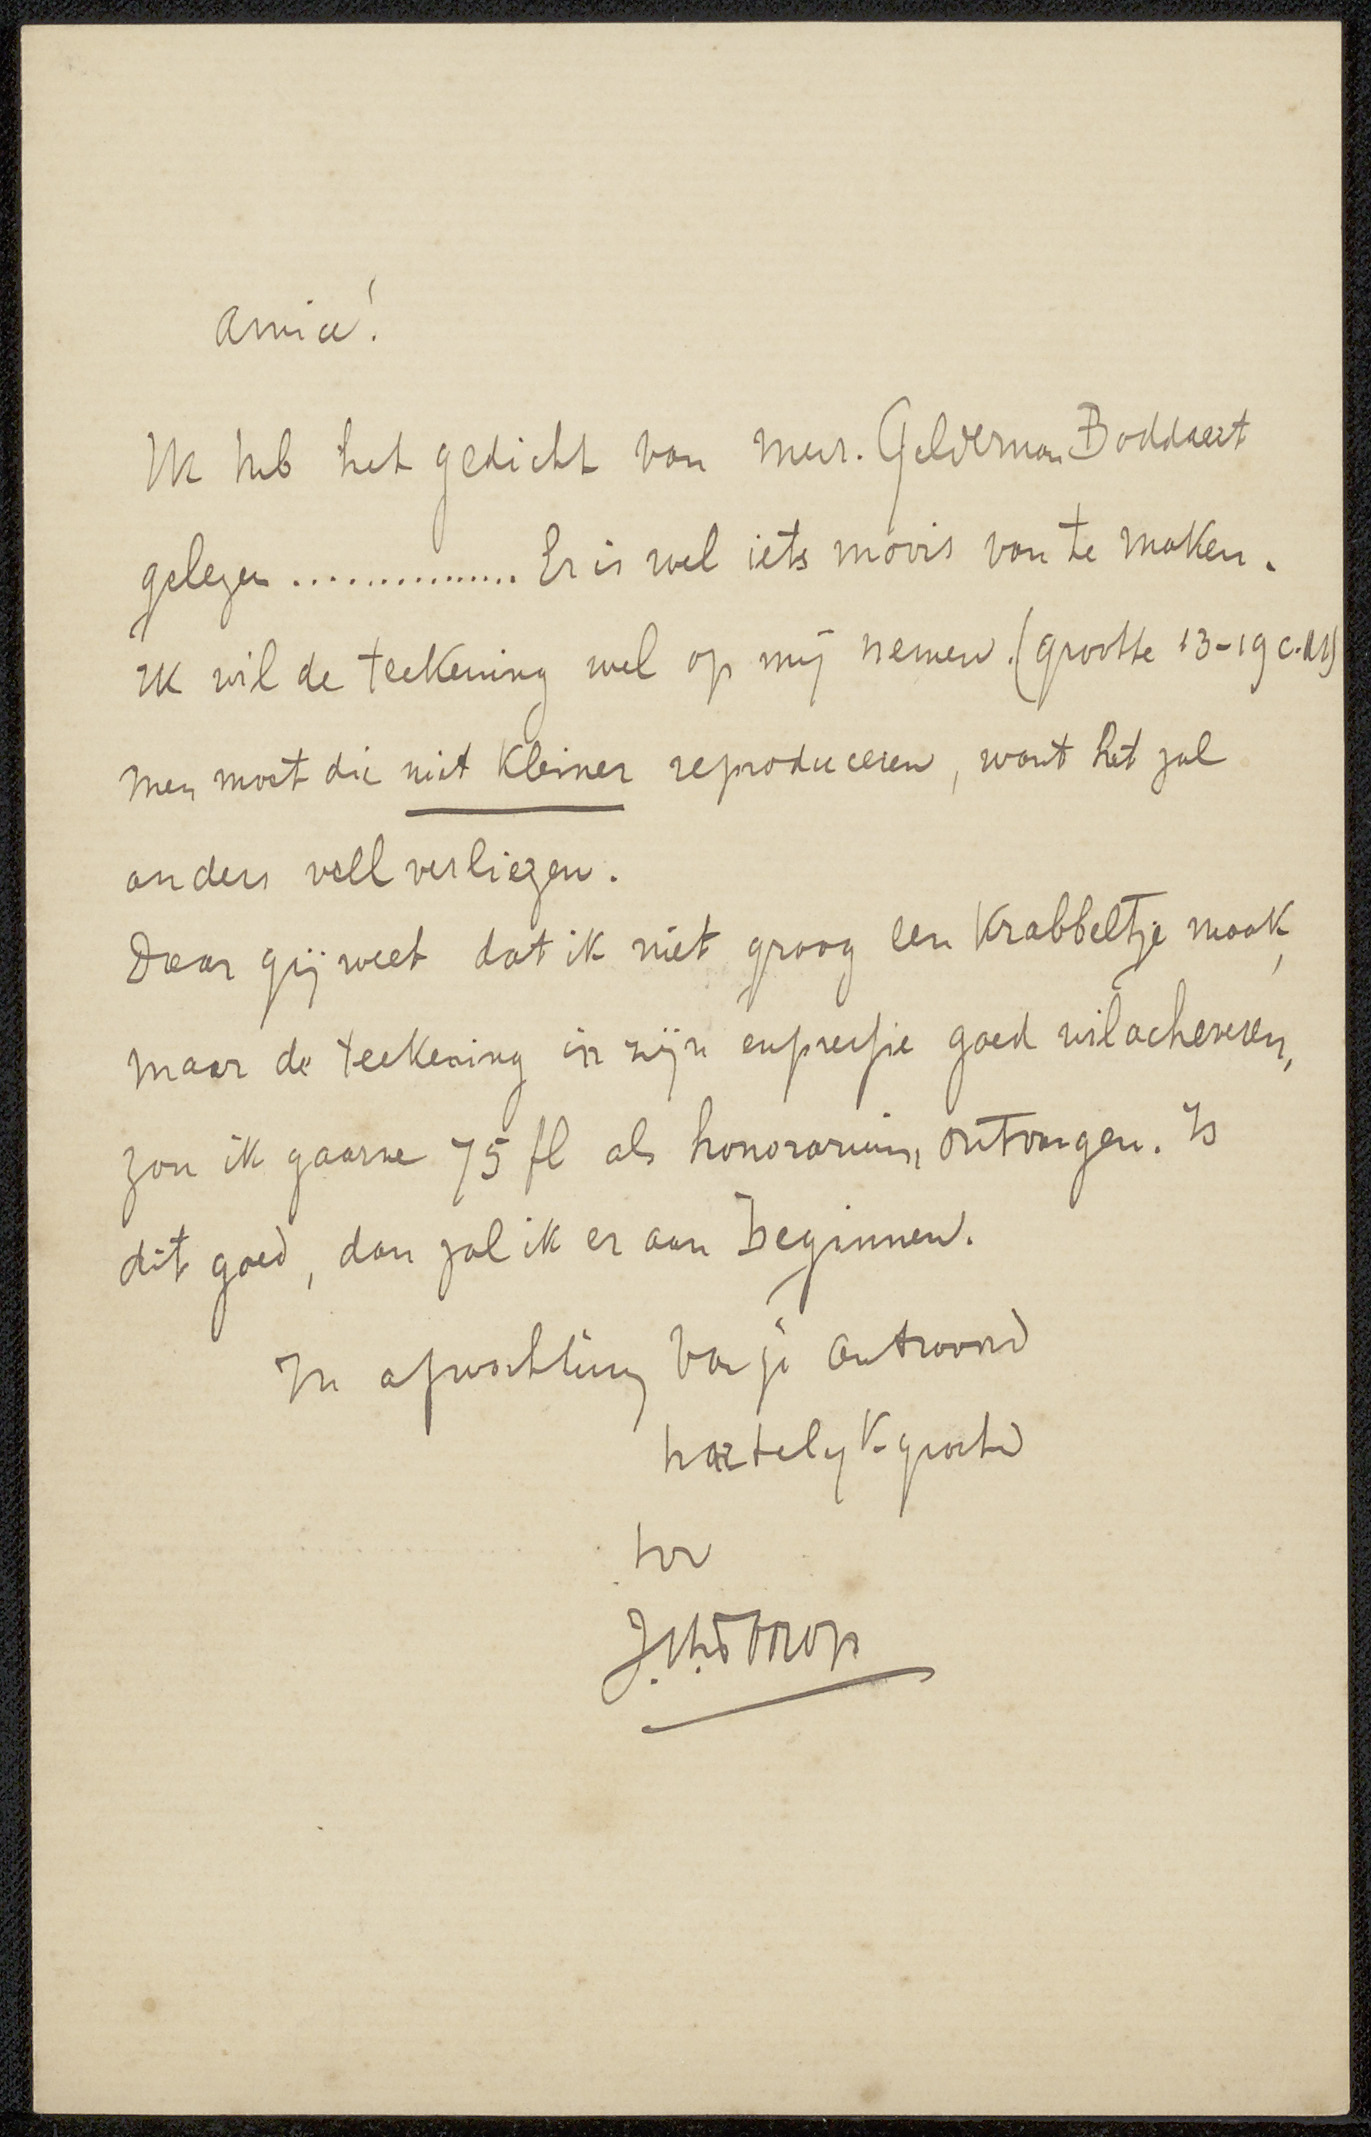 Amice!
Ik heb het gedicht van mevr. Gelderman Boddaert
gelezen ............... Er is wel iets moois van te maken.
Ik wil de teekening wel op mij nemen. (grootte 13-19 c.M)
Men moet die niet kleiner reproduceren, want het zal
anders veel verliezen.
Daar gij weet dat ik niet graag een Krabbeltje maak,
maar de teekening in zijn expressie goed wil acheveren,
zou ik gaarne 75 fl als honorarium ontvangen. Is
dit goed, dan zal ik er aan beginnen.
In afwachting van je antwoord
hartelyk gegroet
J.Th.Toorop